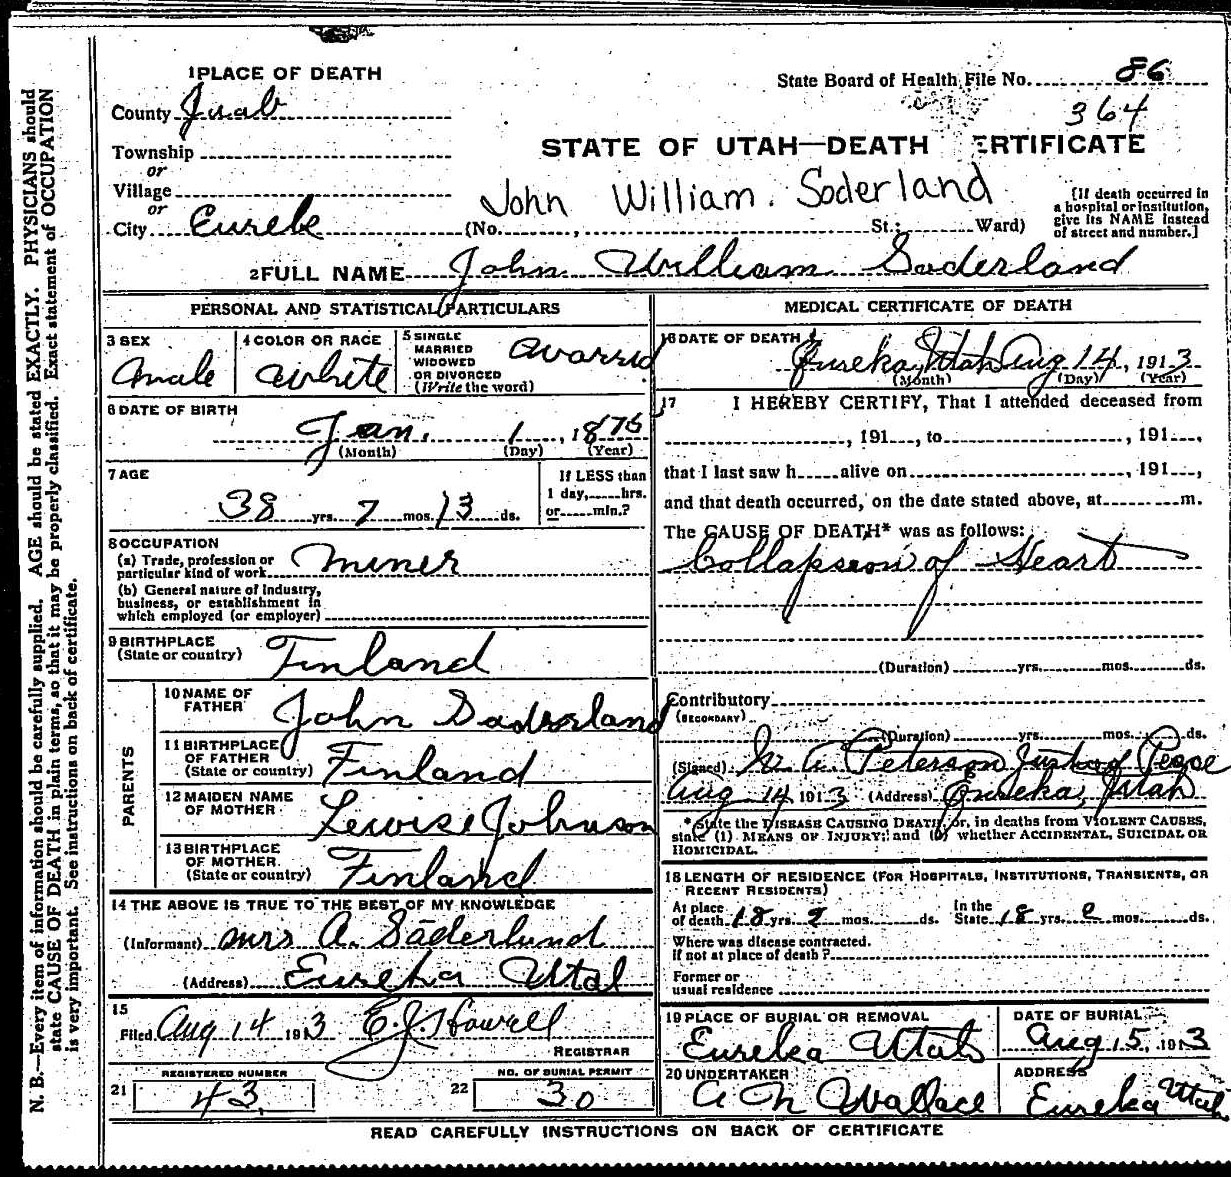 1 PLACE OF DEATH
State Board of Health File No. 86
County Juab
364
STATE OF UTAH—DEATH CERTIFICATE
Township
or
Village
or
John William. Soderland
[If death occurred in
a hospital or institution,
give its NAME instead
of street and number.]
City Eureke (No. , St.; Ward)
2 FULL NAME John William Soderland
PERSONAL AND STATISTICAL PARTICULARS
3 SEX
male
4 COLOR OR RACE
white
5 SINGLE
MARRIED
WIDOWED
OR DIVORCED
(Write the word)
6 DATE OF BIRTH
Jan. 1, 1875
(Month) (Day) (Year)
7 AGE
38 yrs. 7 mos. 13 ds.
If LESS than
1 day, hrs.
or min.?
8 OCCUPATION
(a) Trade, profession or
particular kind of work miner
(b) General nature of industry,
business, or establishment in
which employed (or employer)
9 BIRTHPLACE
(State or country) Finland
PARENTS
10 NAME OF
FATHER John Soderland
11 BIRTHPLACE
OF FATHER
(State or country) Finland
12 MAIDEN NAME
OF MOTHER Lewise Johnson
13 BIRTHPLACE
OF MOTHER.
(State or country) Finland
14 THE ABOVE IS TRUE TO THE BEST OF MY KNOWLEDGE
(Informant) Mrs A. Säderlund
(Address) Eureka Utal
15
Filed Aug 14 1913 E.J. Howell
REGISTRAR
REGISTERED NUMBER
21 43
NO. OF BURIAL PERMIT
22 30
MEDICAL CERTIFICATE OF DEATH
16 DATE OF DEATH
Eureka, Utah Aug 14, 1913
(Month) (Day) (Year)
17 I HEREBY CERTIFY, That I attended deceased from
, 191 , to , 191 ,
that I last saw h alive on , 191 ,
and that death occurred, on the date stated above, at m.
The CAUSE OF DEATH* was as follows:
of Heart
(Duration) yrs. mos. ds.
Contributory
(SECONDARY)
(Duration) yrs. mos. ds.
(Signed) A. Peterson Just of Peace
Aug 14 1913 (Address) Eureka, Utah
*State the DISEASE CAUSING DEATH, or, in deaths from VIOLENT CAUSES,
state (1) MEANS OF INJURY; and (2) whether ACCIDENTAL, SUICIDAL OR
HOMICIDAL.
18 LENGTH OF RESIDENCE (FOR HOSPITALS, INSTITUTIONS, TRANSIENTS, OR
RECENT RESIDENTS)
At place
of death 18 yrs. mos. ds.
In the
State 18 yrs. mos. ds.
Where was disease contracted.
If not at place of death?
Former or
usual residence
19 PLACE OF BURIAL OR REMOVAL
Eureka Utah
DATE OF BURIAL
Aug 15, 1913
20 UNDERTAKER
A N Wallace
ADDRESS
Eureka Utah
READ CAREFULLY INSTRUCTIONS ON BACK OF CERTIFICATE
N. B.—Every item of information should be carefully supplied. AGE should be stated EXACTLY. PHYSICIANS should
state CAUSE OF DEATH in plain terms, so that it may be properly classified. Exact statement of OCCUPATION
is very important. See instructions on back of certificate.